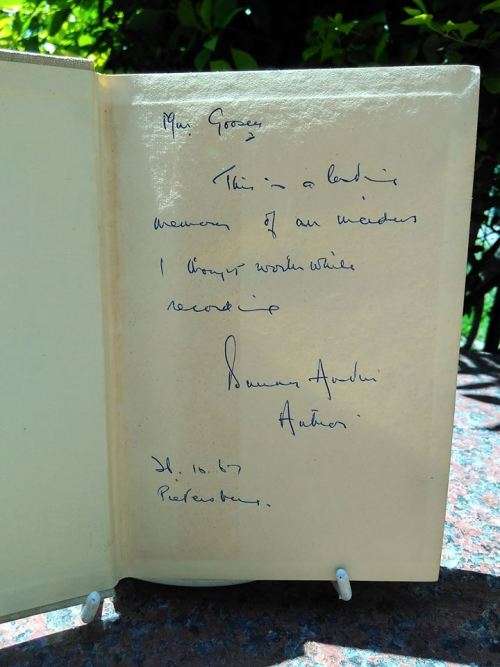 Mrs. Goosen
This is a lasting
memory of an incident
I thought worth while
recording
Author
26. 10. 67
Pietersburg.